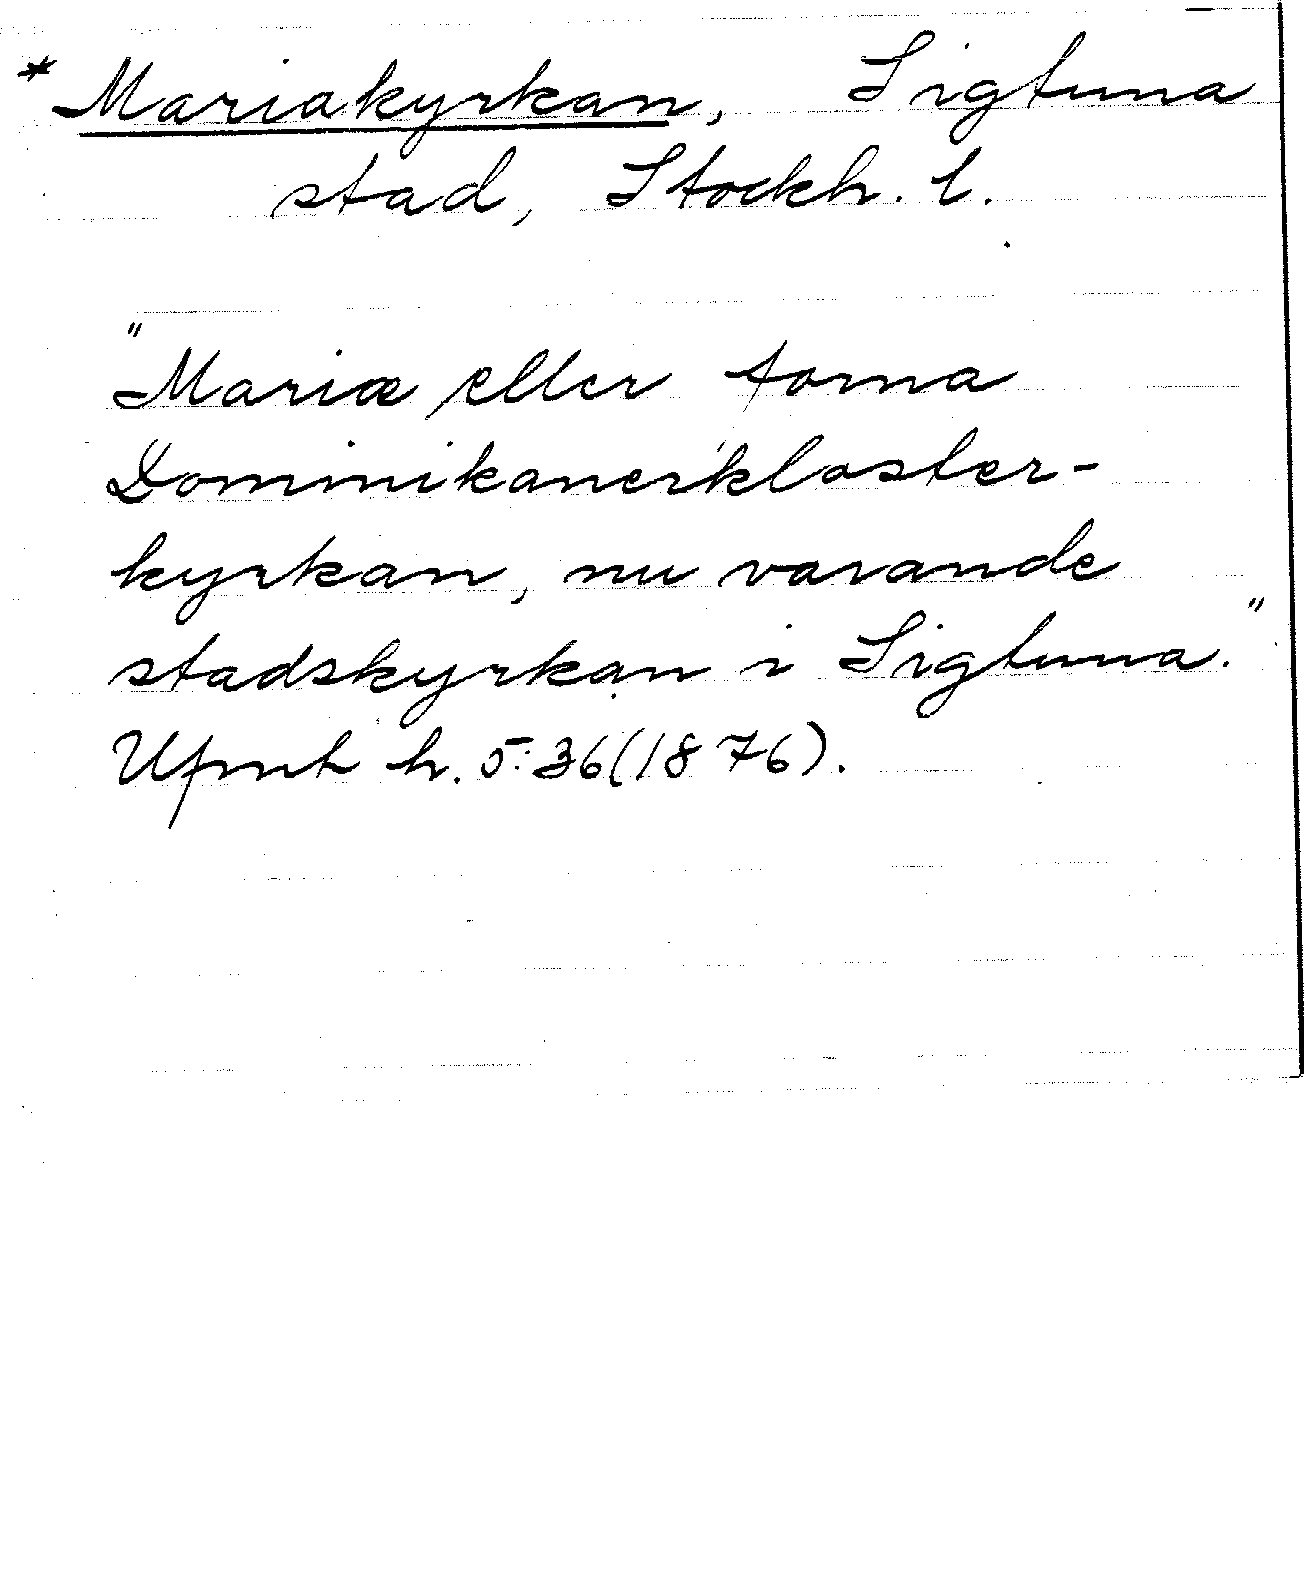 * Mariakyrkan, Sigtuna
stad, Stockh. l.
"Mariæ eller forna
Dominikanerkloster-
kyrkan, nu varande
stadskyrkan i Sigtuna."
Ufmt h. 5:36 (1876).